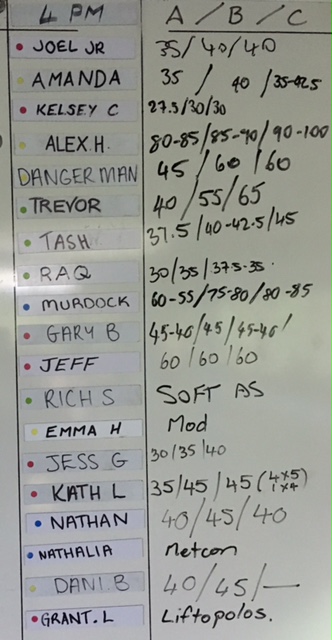 4 PM A / B / C
JOEL JR 35/40/40
AMANDA 35 / 40 /35-42.5
KELSEY C 27.5/30/30
ALEX.H. 80-85/85-90/90-100
DANGERMAN 45 / 60 / 60
TREVOR 40 /55/65
TASH 37.5/40-42.5/45
RAQ 30/35/37.5-35.
MURDOCK 60-55/75-80/80-85
GARY B 45-40/45/45-40/
JEFF 60/60/60
RICH S SOFT AS
EMMA H Mod
JESS G 30/35/40
KATH L 35/45/45 (4x5) 1x4
NATHAN 40/45/40
NATHALIA Metcon
DANI.B 40/45/—
GRANT.L Liftopolos.